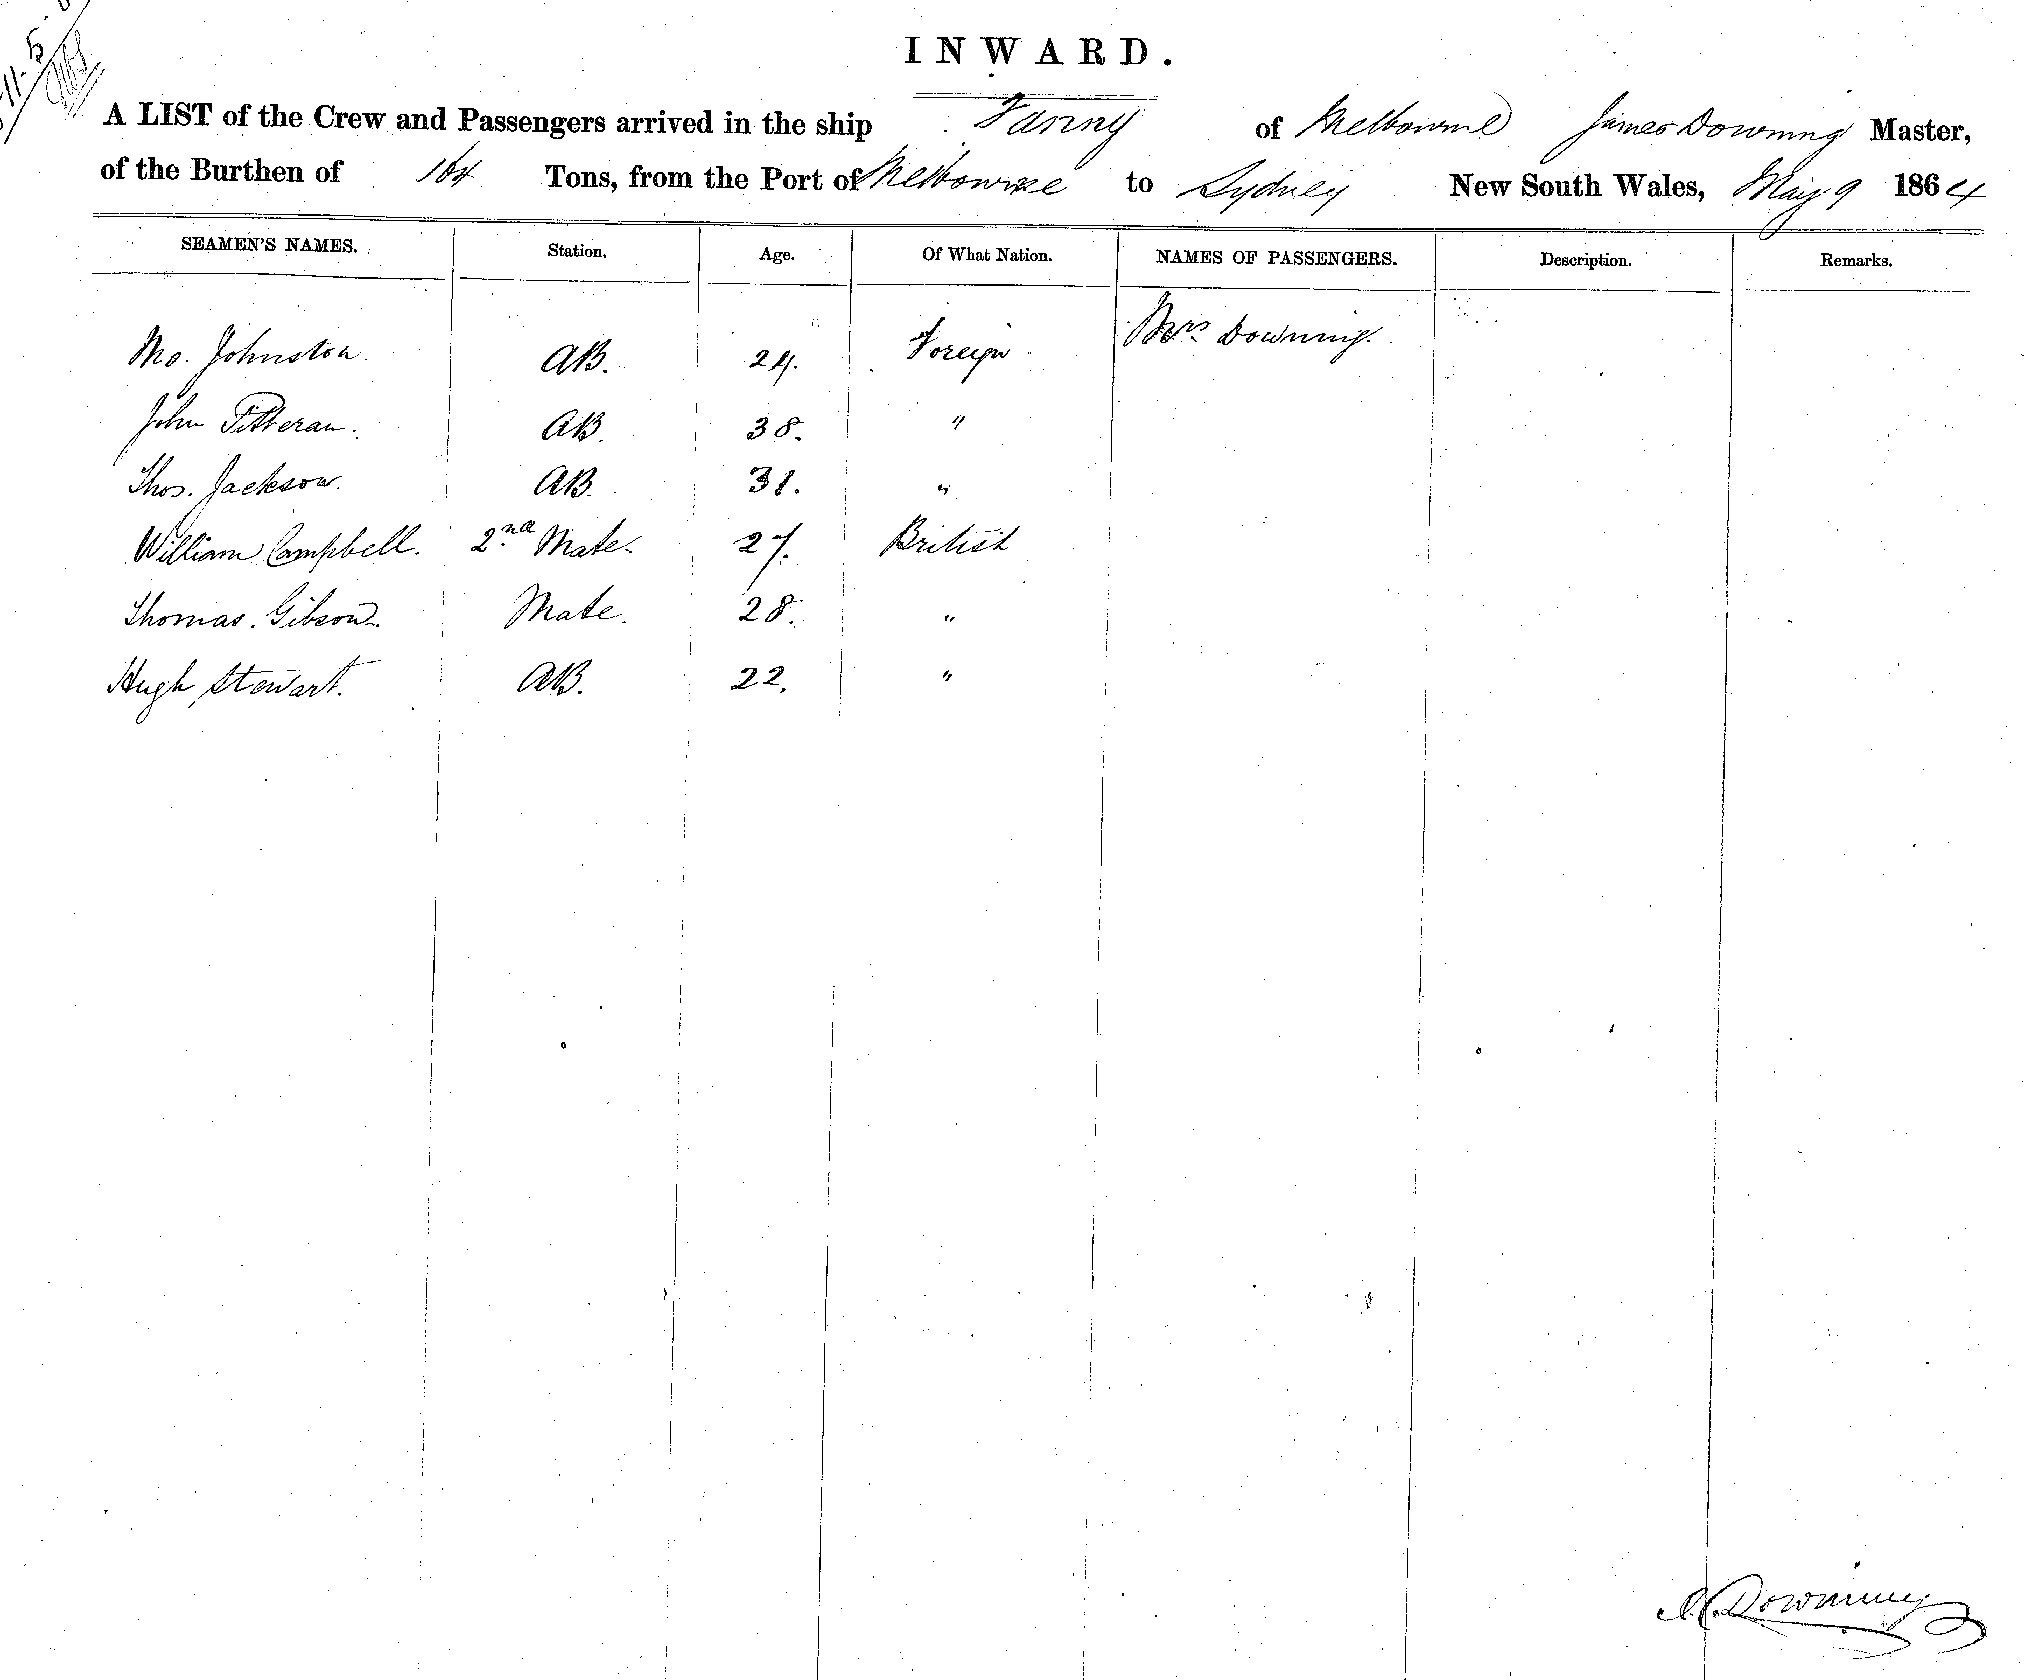 INWARD.
A LIST of the Crew and Passengers arrived in the ship Fanny of Melbourne James Downing Master,
of the Burthen of 164 Tons, from the Port of Melbourne to Sydney New South Wales, May 9 1864
SEAMEN'S NAMES. Station. Age. Of What Nation. NAMES OF PASSENGERS. Description. Remarks.
Mo. Johnston. AB. 24. Foreign Mrs Downing.
John AB. 38. "
Thos. Jackson. AB. 31. "
William Campbell. 2nd Mate. 27. British
Thomas. Gibson. Mate. 28. "
Hugh Stewart. AB. 22. "
Downing